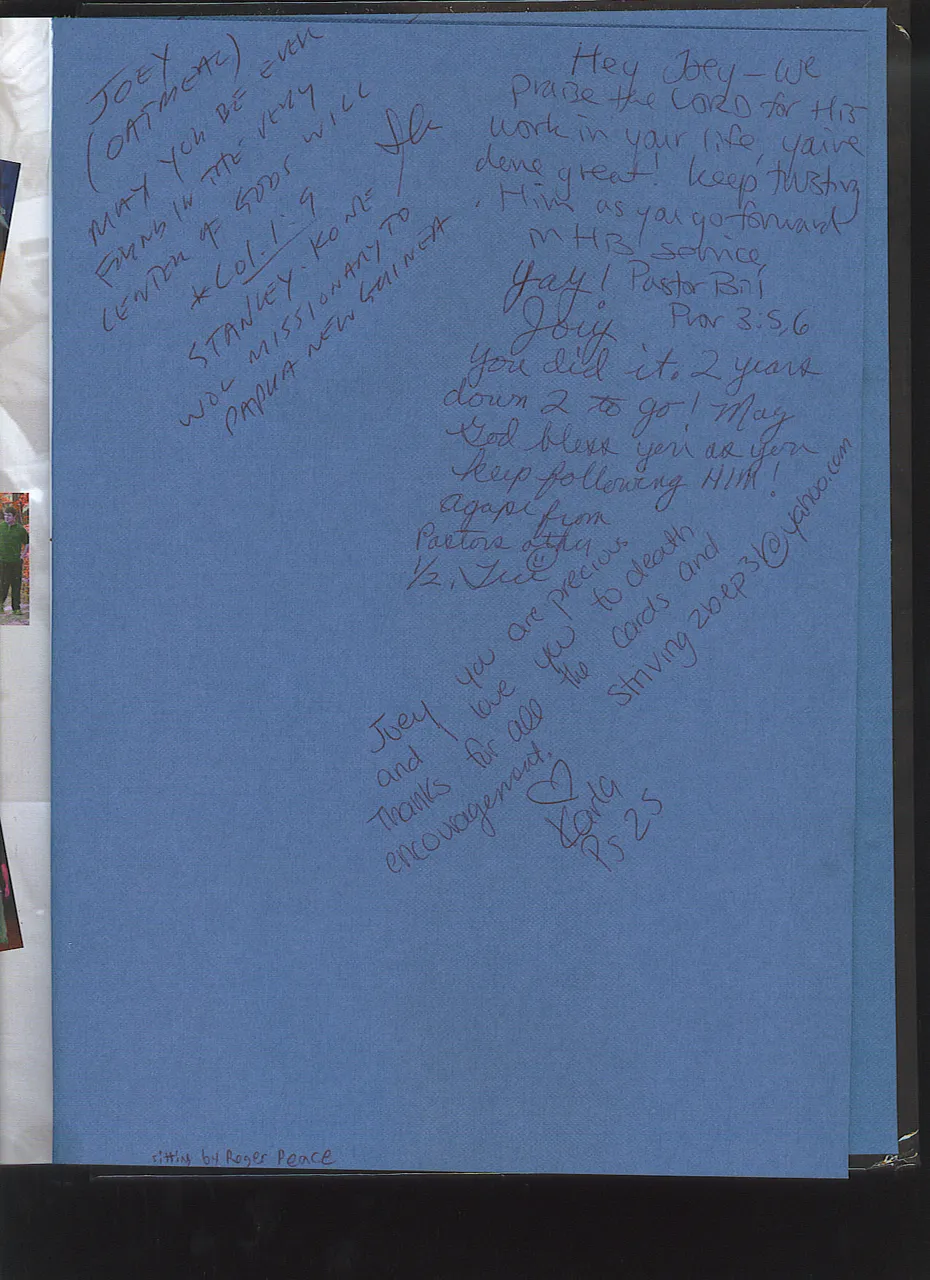 JOEY
(OATMEAL)
MAY YOU BE EVER
FOUND IN THE VERY
CENTER OF GODS WILL
*COL. 1:9
STANLEY KOME
WOL MISSIONARY TO
PAPUA NEW GUINEA
Hey Joey - we
praise the LORD for His
work in your life, you've
done great! keep trusting
Him as you go forward
in His service,
Pastor Bill
Prov 3:5,6
Yay!
Joey
You did it. 2 years
down 2 to go! May
God bless you as you
keep following HIM!
agape from
Pastors other
1/2,
Joey you are precious
and I love you to death
Thanks for all the cards and
encouragement.
Karla
Ps 25
striving2bep31@yahoo.com
sitting by Roger Peace